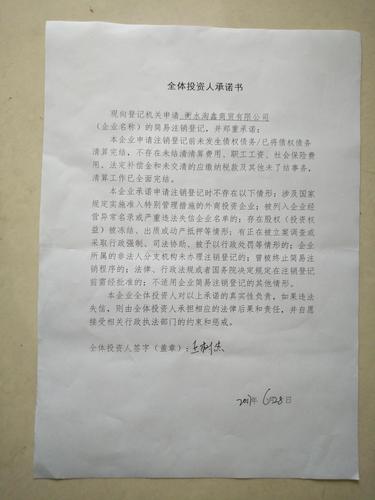 全体投资人承诺书
现向登记机关申请 衡水海鑫商贸有限公司
（企业名称）的简易注销登记，并郑重承诺：
本企业申请注销登记前未发生债权债务/已将债权债务
清算完结，不存在未结清清算费用、职工工资、社会保险费
用、法定补偿金和未交清的应缴纳税款及其他未了结事务，
清算工作已全面完结。
本企业承诺申请注销登记时不存在以下情形：涉及国家
规定实施准入特别管理措施的外商投资企业；被列入企业经
营异常名录或严重违法失信企业名单的；存在股权（投资权
益）被冻结、出质或动产抵押等情形；有正在被立案调查或
采取行政强制、司法协助、被予以行政处罚等情形的；企业
所属的非法人分支机构未办理注销登记的；曾被终止简易注
销程序的；法律、行政法规或者国务院决定规定在注销登记
前需经批准的；不适用企业简易注销登记的其他情形。
本企业全体投资人对以上承诺的真实性负责，如果违法
失信，则由全体投资人承担相应的法律后果和责任，并自愿
接受相关行政执法部门的约束和惩戒。
全体投资人签字（盖章）：
2017年 6月28日